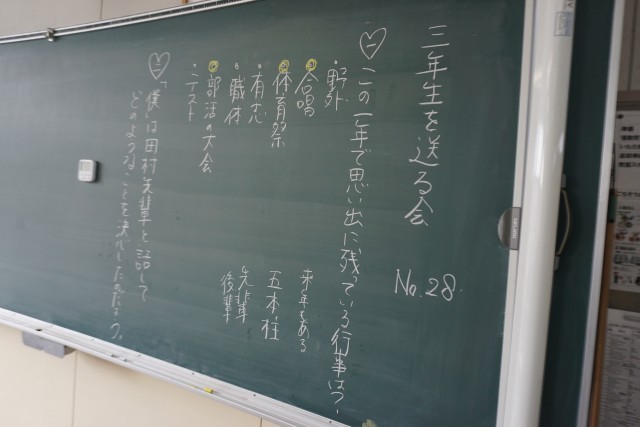 三年生を送る会
No.28.
一 この一年で思い出に残っている行事は?
・野外
・合唱
・体育祭
・有志
・職体
・部活の大会
・テスト
来年もある
五本柱
先輩
後輩
二 「僕」は田村先輩と話して
どのようなことを決心したのだろう。